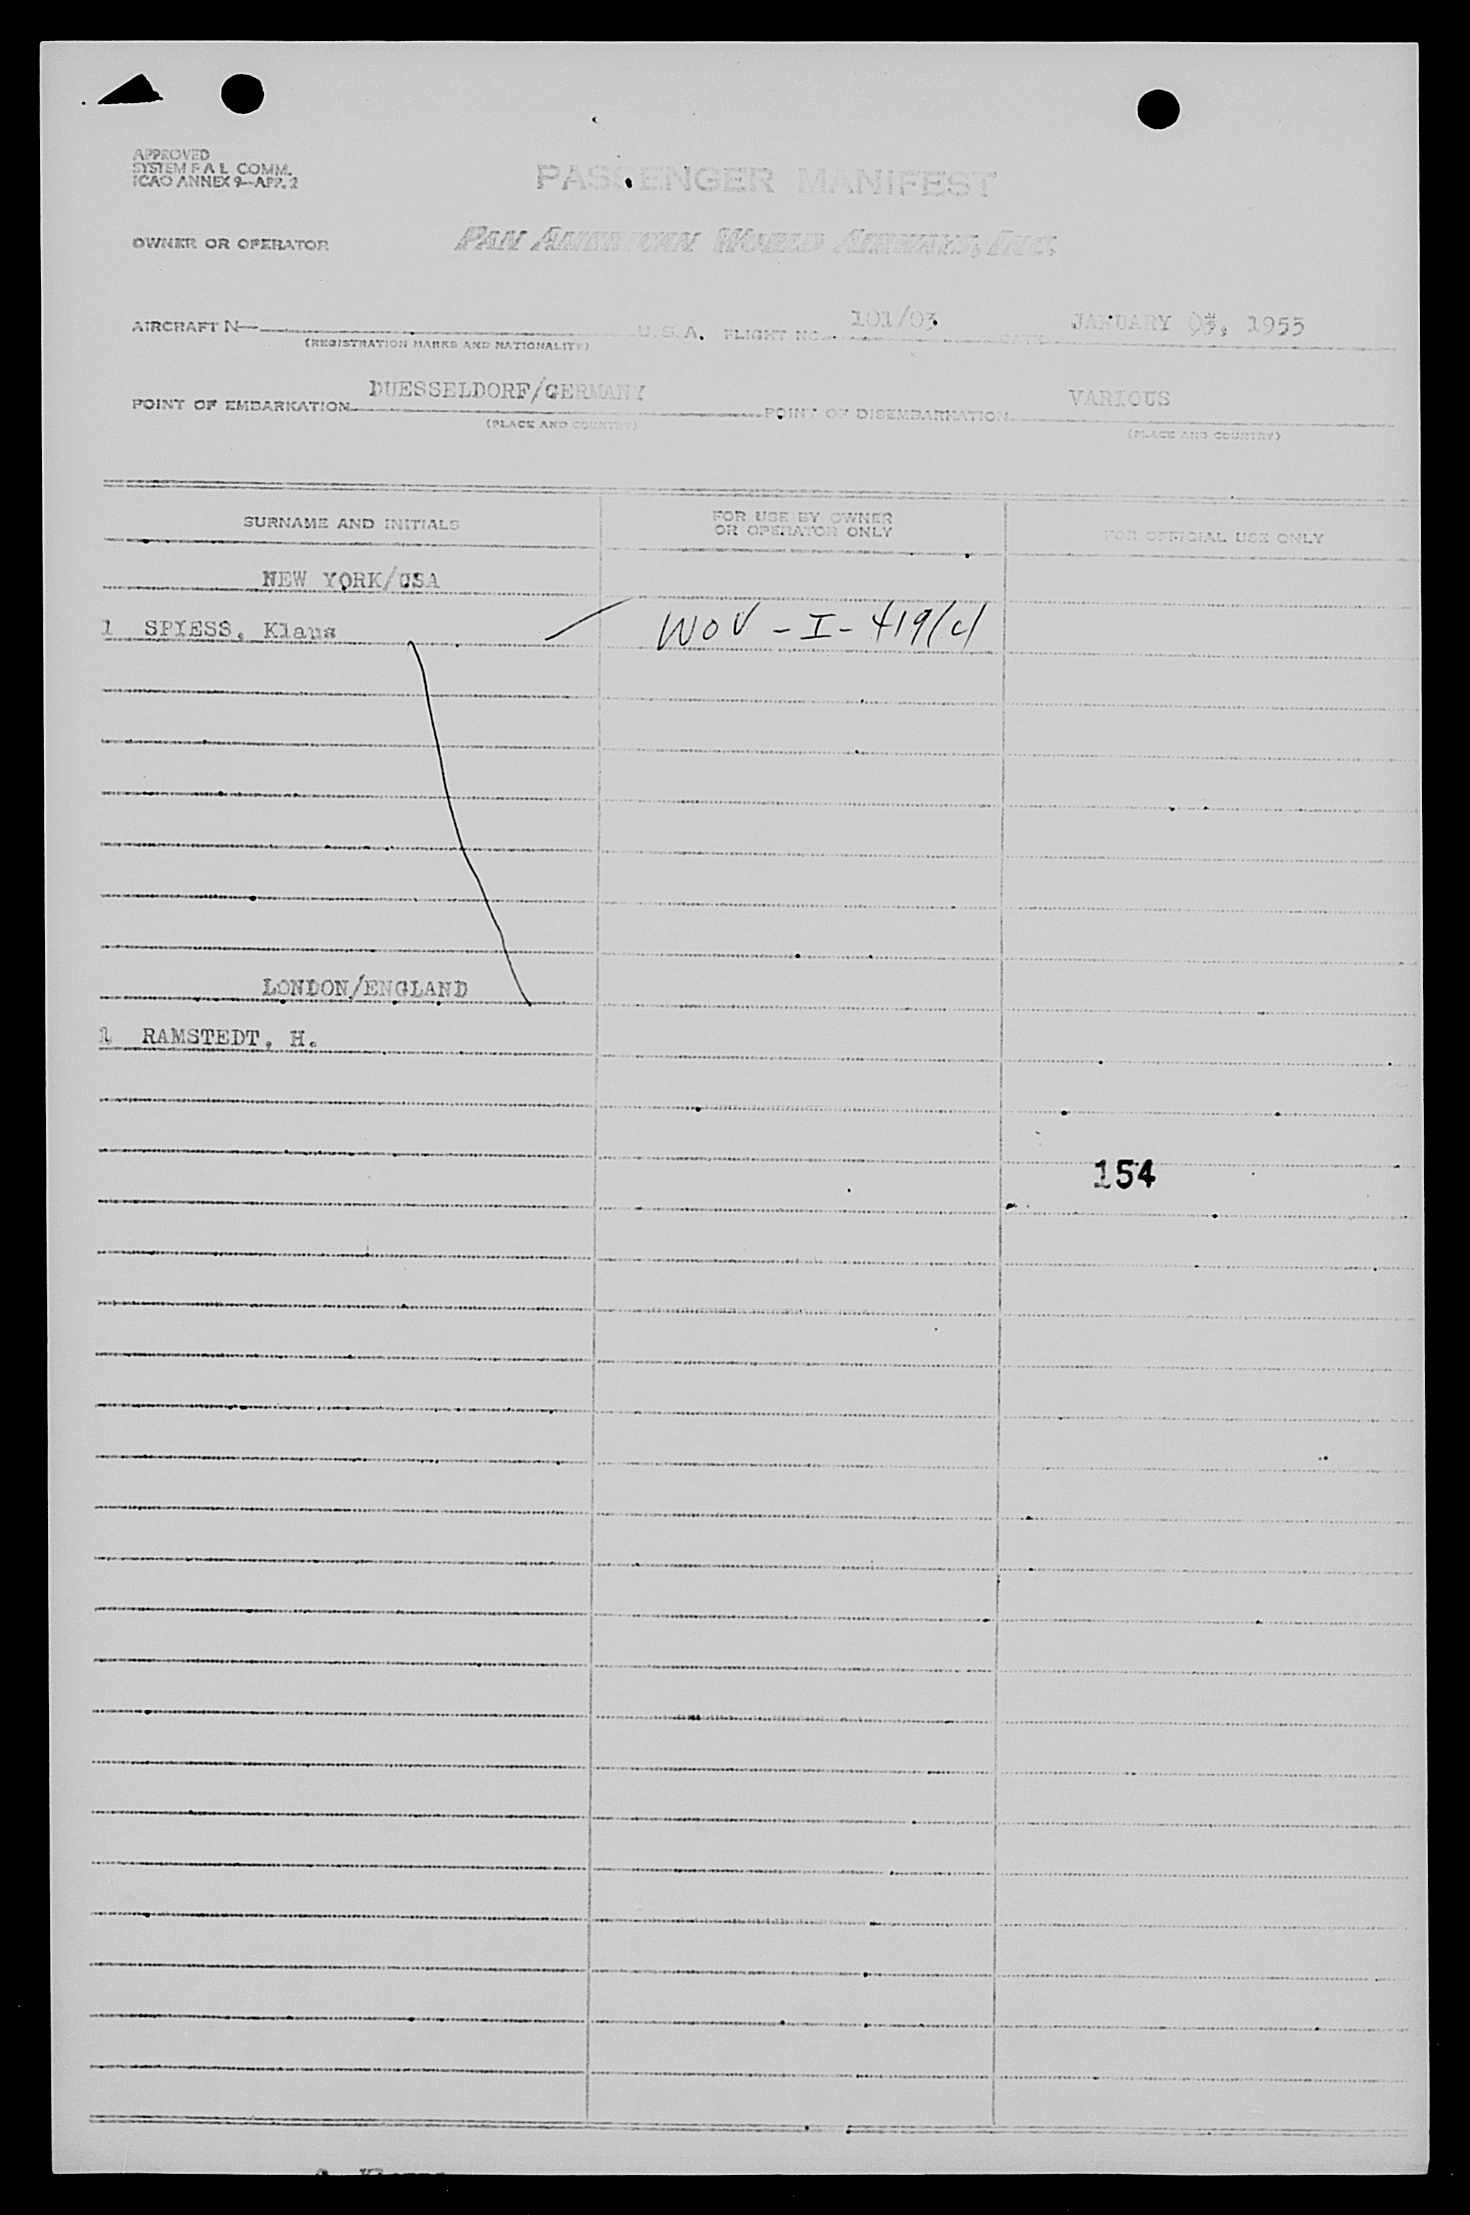 APPROVED
SYSTEM F A L COMM.
ICAO ANNEX 9—APP. 2
PASSENGER MANIFEST
OWNER OR OPERATOR PAN AMERICAN WORLD AIRWAYS, INC.
AIRCRAFT N— U. S. A. FLIGHT NO. 101/03 DATE JANUARY 03, 1955
(REGISTRATION MARKS AND NATIONALITY)
POINT OF EMBARKATION DUESSELDORF/GERMANY POINT OF DISEMBARKATION VARIOUS
(PLACE AND COUNTRY) (PLACE AND COUNTRY)
SURNAME AND INITIALS FOR USE BY OWNER OR OPERATOR ONLY FOR OFFICIAL USE ONLY
NEW YORK/USA
1 SPIESS, Klaus WOV - I - 419(c)
LONDON/ENGLAND
1 RAMSTEDT, H.
154